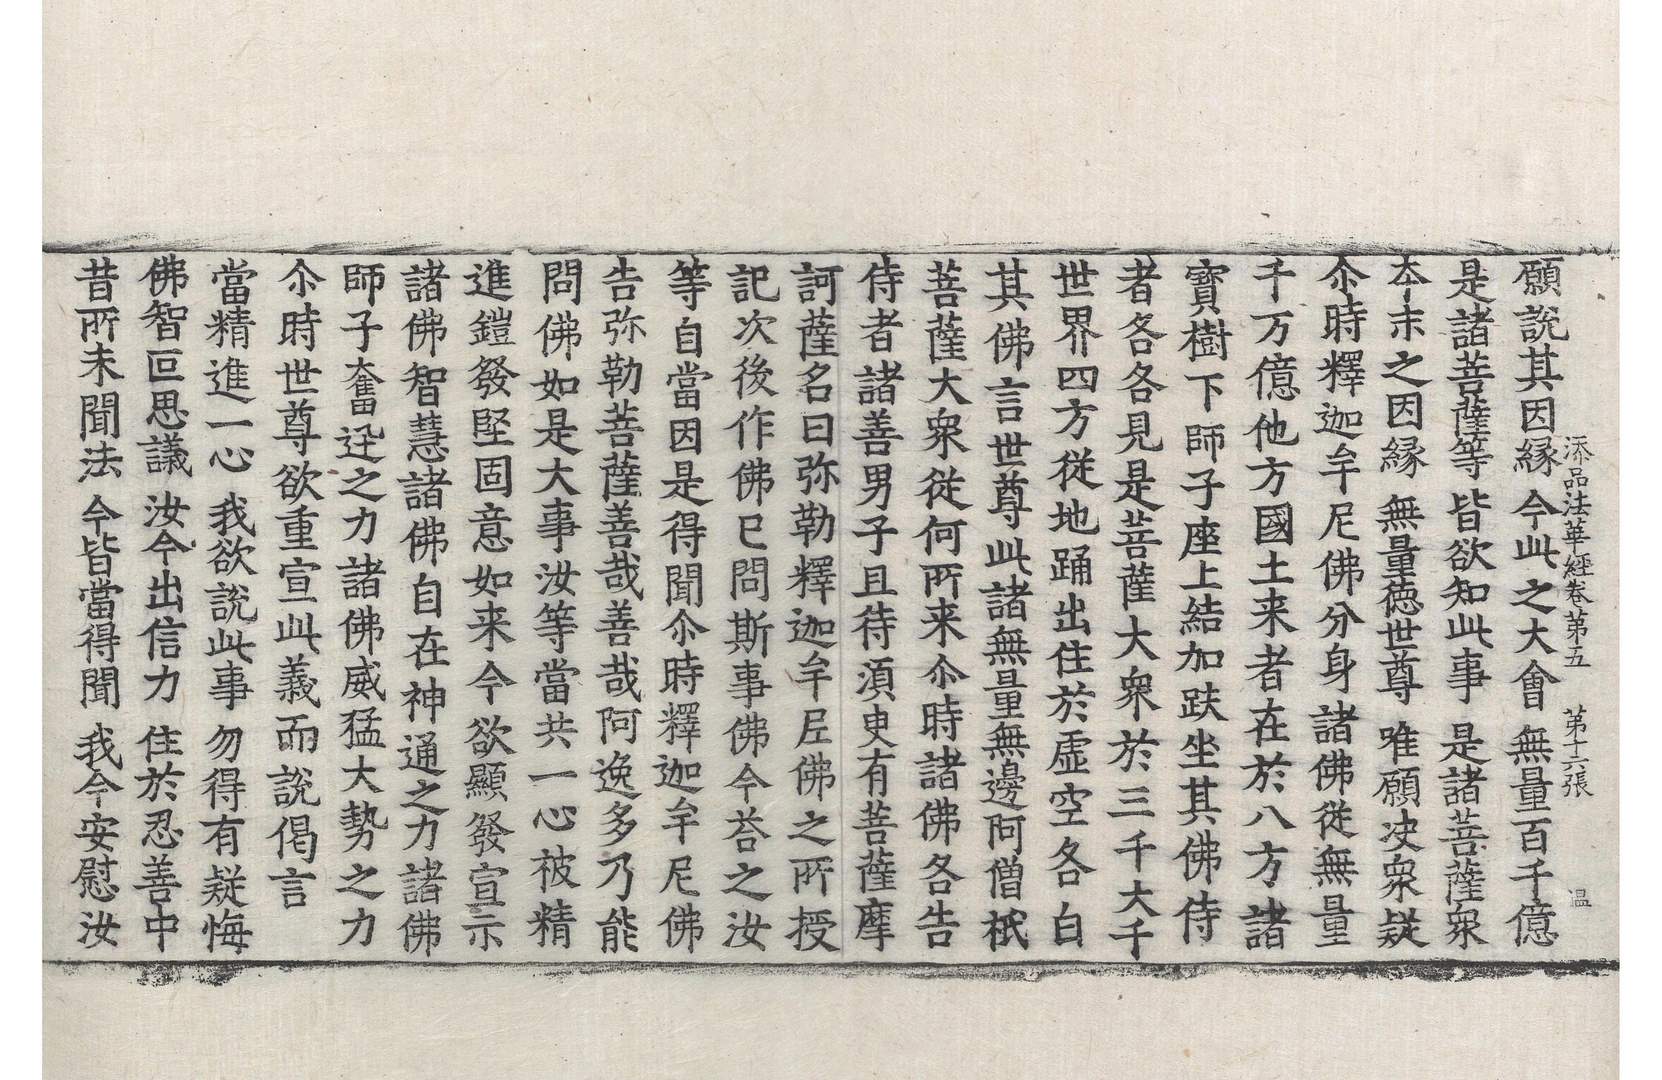 添品法華經卷第五 第十六張 温
願說其因緣 今此之大會 無量百千億
是諸菩薩等 皆欲知此事 是諸菩薩衆
本末之因緣 無量德世尊 唯願决衆疑
尒時釋迦牟尼佛分身諸佛從無量
千万億他方國土来者在於八方諸
寶樹下師子座上結加趺坐其佛侍
者各各見是菩薩大衆於三千大千
世界四方從地踊出住於虛空各白
其佛言世尊此諸無量無邊阿僧祇
菩薩大衆從何所来尒時諸佛各告
侍者諸善男子且待須臾有菩薩摩
訶薩名曰弥勒釋迦牟尼佛之所授
記次後作佛已問斯事佛今荅之汝
等自當因是得聞尒時釋迦牟尼佛
告弥勒菩薩善哉善哉阿逸多乃能
問佛如是大事汝等當共一心被精
進鎧發堅固意如来今欲顯發宣示
諸佛智慧諸佛自在神通之力諸佛
師子奮迅之力諸佛威猛大勢之力
尒時世尊欲重宣此義而說偈言
當精進一心 我欲說此事 勿得有疑悔
佛智叵思議 汝今出信力 住於忍善中
昔所未聞法 今皆當得聞 我今安慰汝